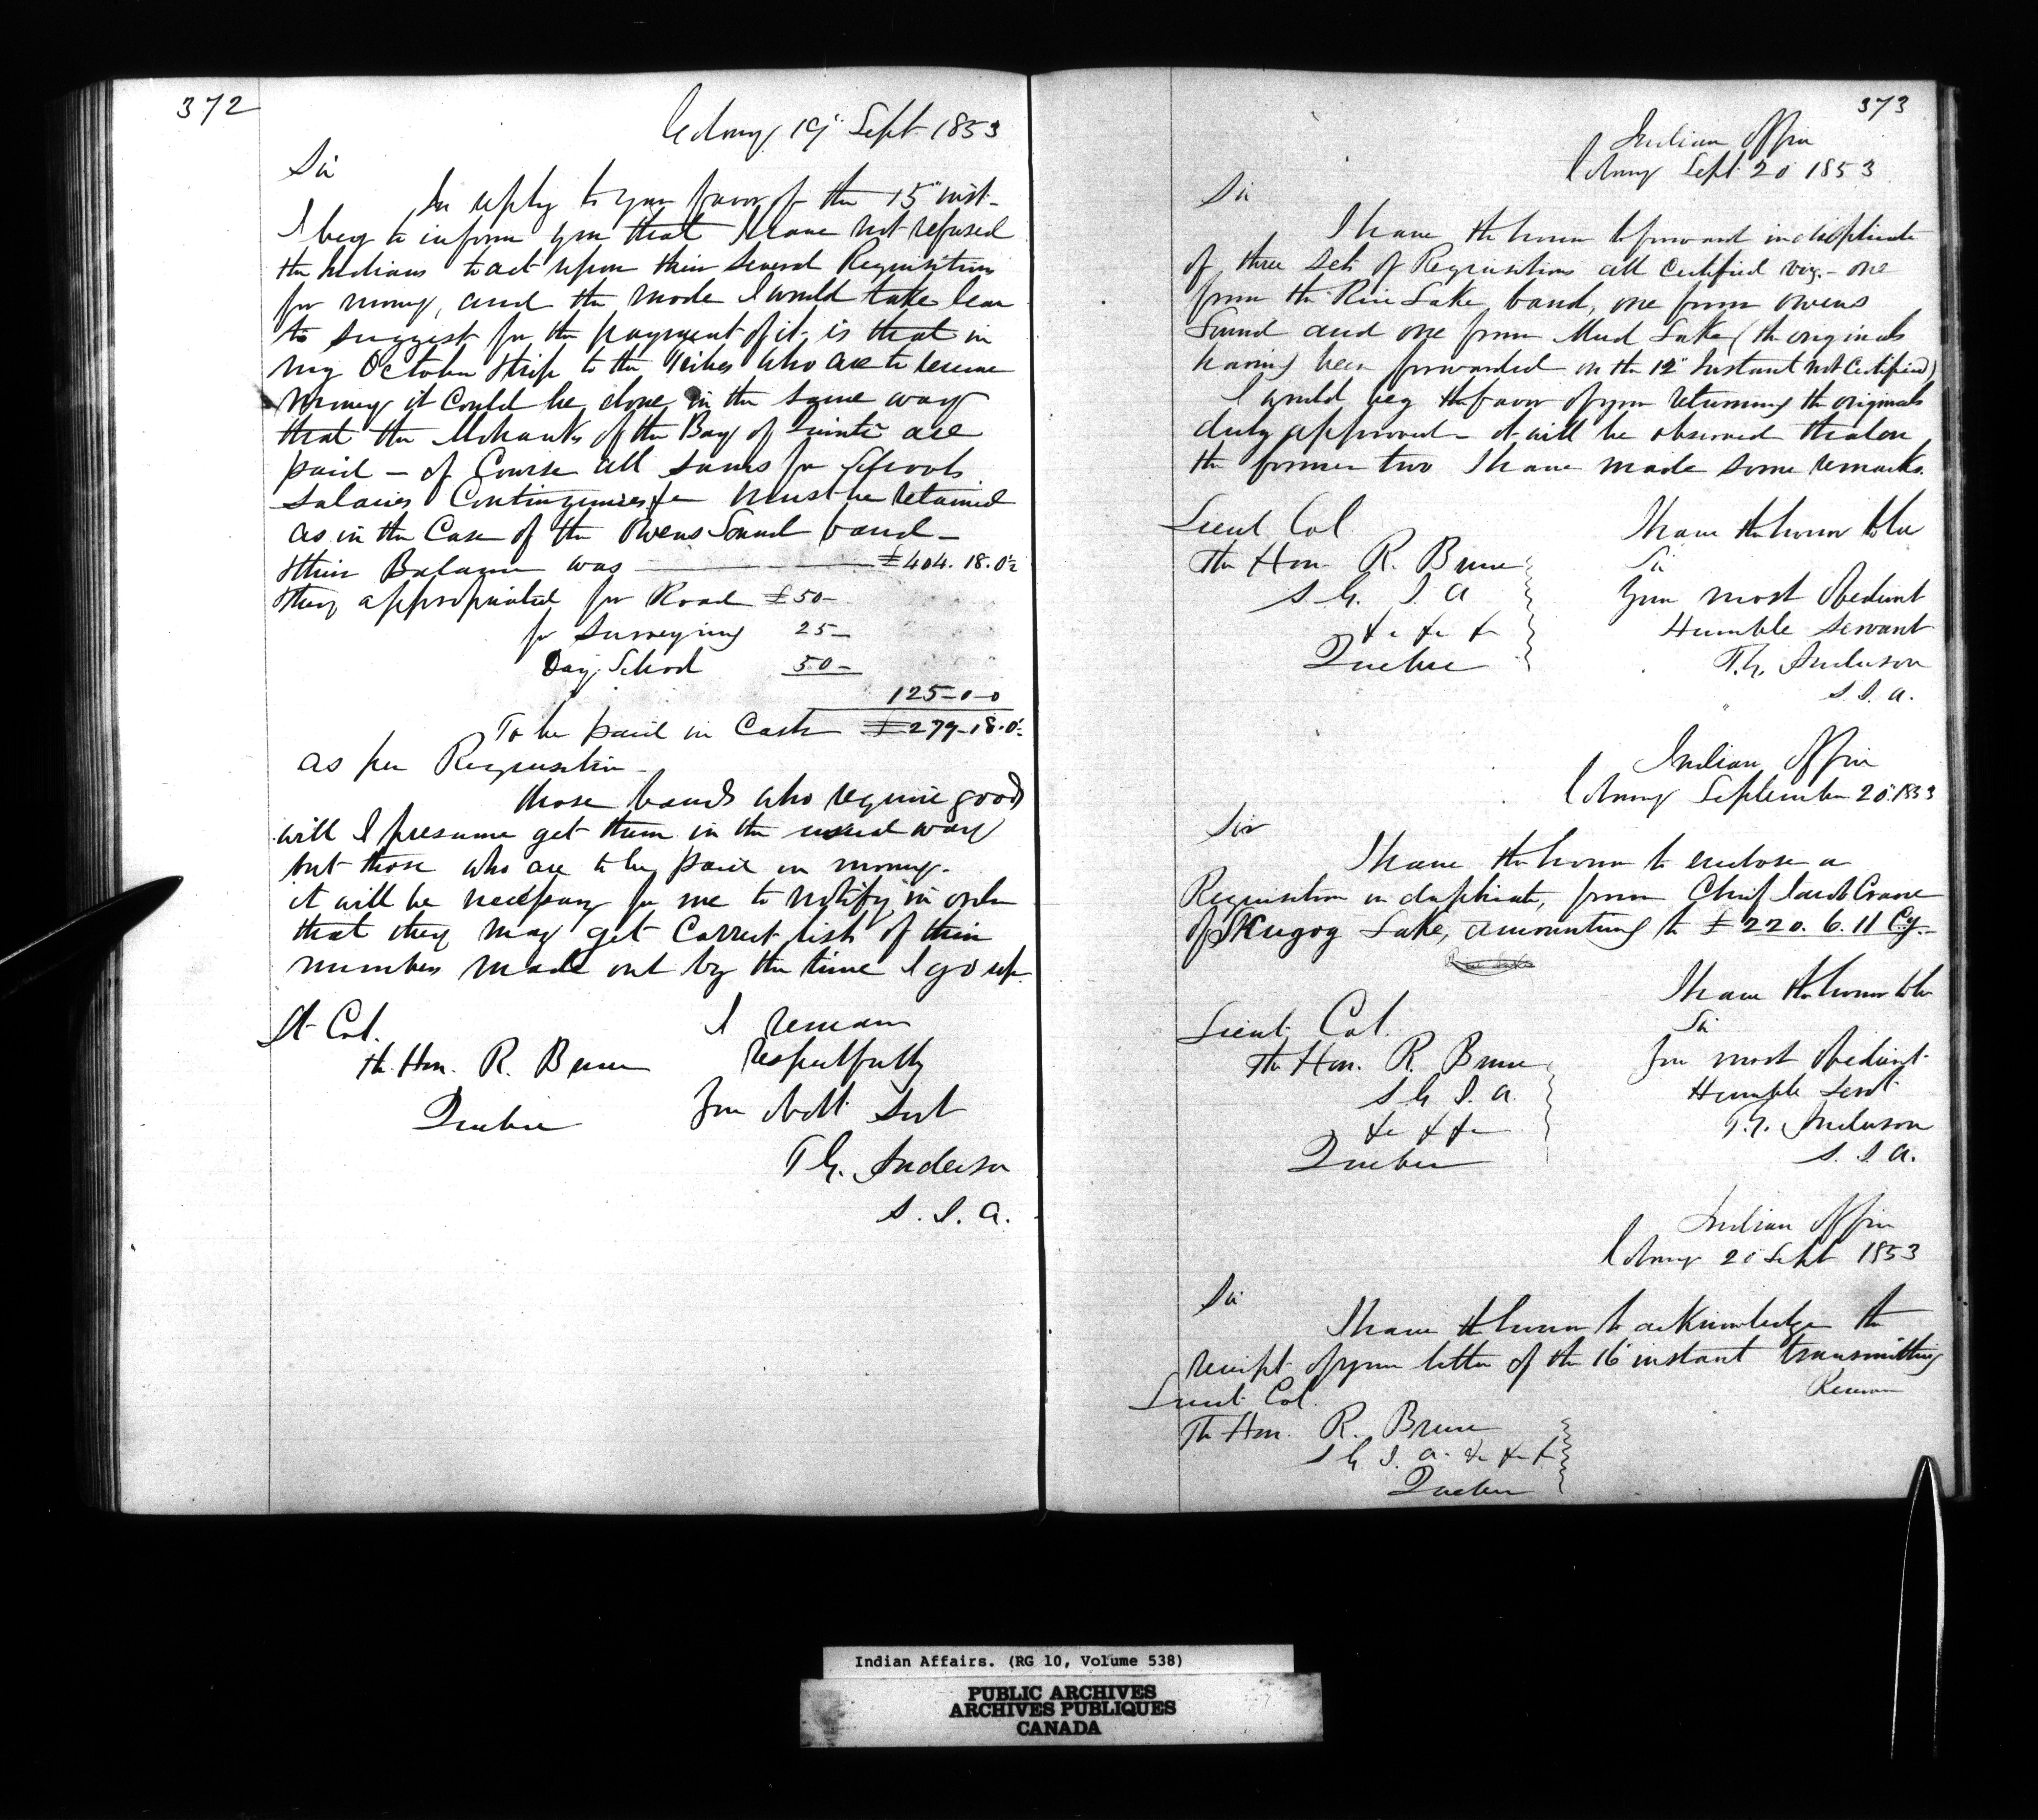 372
Cobourg 19" Sept 1853
Sir
In reply to your favor of the 15" inst-
I beg to inform you that I have not refused
the Indians to act upon their several Requisitions
for money, and the mode I would take leave
to suggest for the payment of it, is that in
my October trip to the Tribes who are to receive
money it could be done in the same way
that the Mohawks of the Bay of Quinté are
paid – of Course all sums for Schools
Salaries Contingencies &c must be retained
as in the Case of the Owens Sound band –
their Balance was £404. 18. 0½
they appropriated for Road £50–
for Surveying 25–
Day School 50–
125–0–0
To be paid in Cash £279–18.0½
as per Requisition –
those bands who require goods
will I presume get them in the usual way
but those who are to be paid in money.
it will be necessary for me to notify in order
that they may get Correct lists of their
numbers made out by the time I go up.
Lt Col.
I remain
The Hon. R. Bruce
respectfully
Quebec
Your obdt Svt
T G. Anderson
S. I. A.
373
Indian Office
Cobourg Sept 20 1853
Sir
I have the honor to forward in duplicate
of three sets of Requisitions all Certified viz. – one
from the Rice Lake band, one from Owens
Sound and one from Mud Lake (the originals
having been forwarded on the 12" Instant not Certified)
I would beg the favor of your returning the originals
duly approved – it will be observed that on
the former two I have made some remarks.
Lieut Col
I have the honor to be
The Hon. R. Bruce
Sir
S. G. I. A
Your most Obedient
&c &c &c
Humble Servant
Quebec
T. G. Anderson
S. I. A.
Indian Office
Cobourg September 20. 1853
Sir
I have the honor to enclose a
Requisition in duplicate, from Chief Jacob Crane
of Skugog Lake, amounting to £220. 6. 11 Cy.
Rice Lake
I have the honor to be
Lieut. Col.
Sir
The Hon. R. Bruce
Your most obedient
S G I. A.
Humble Servt
&c &c &c
T. G. Anderson
Quebec
S. I. A.
Indian Office
Cobourg 20 Sept 1853
Sir
I have the honor to acknowledge the
receipt of your letter of the 16 instant transmitting
Lieut Col.
The Hon. R. Bruce
S G I. A. &c &c &c
Quebec
Indian Affairs. (RG 10, Volume 538)
PUBLIC ARCHIVES
ARCHIVES PUBLIQUES
CANADA